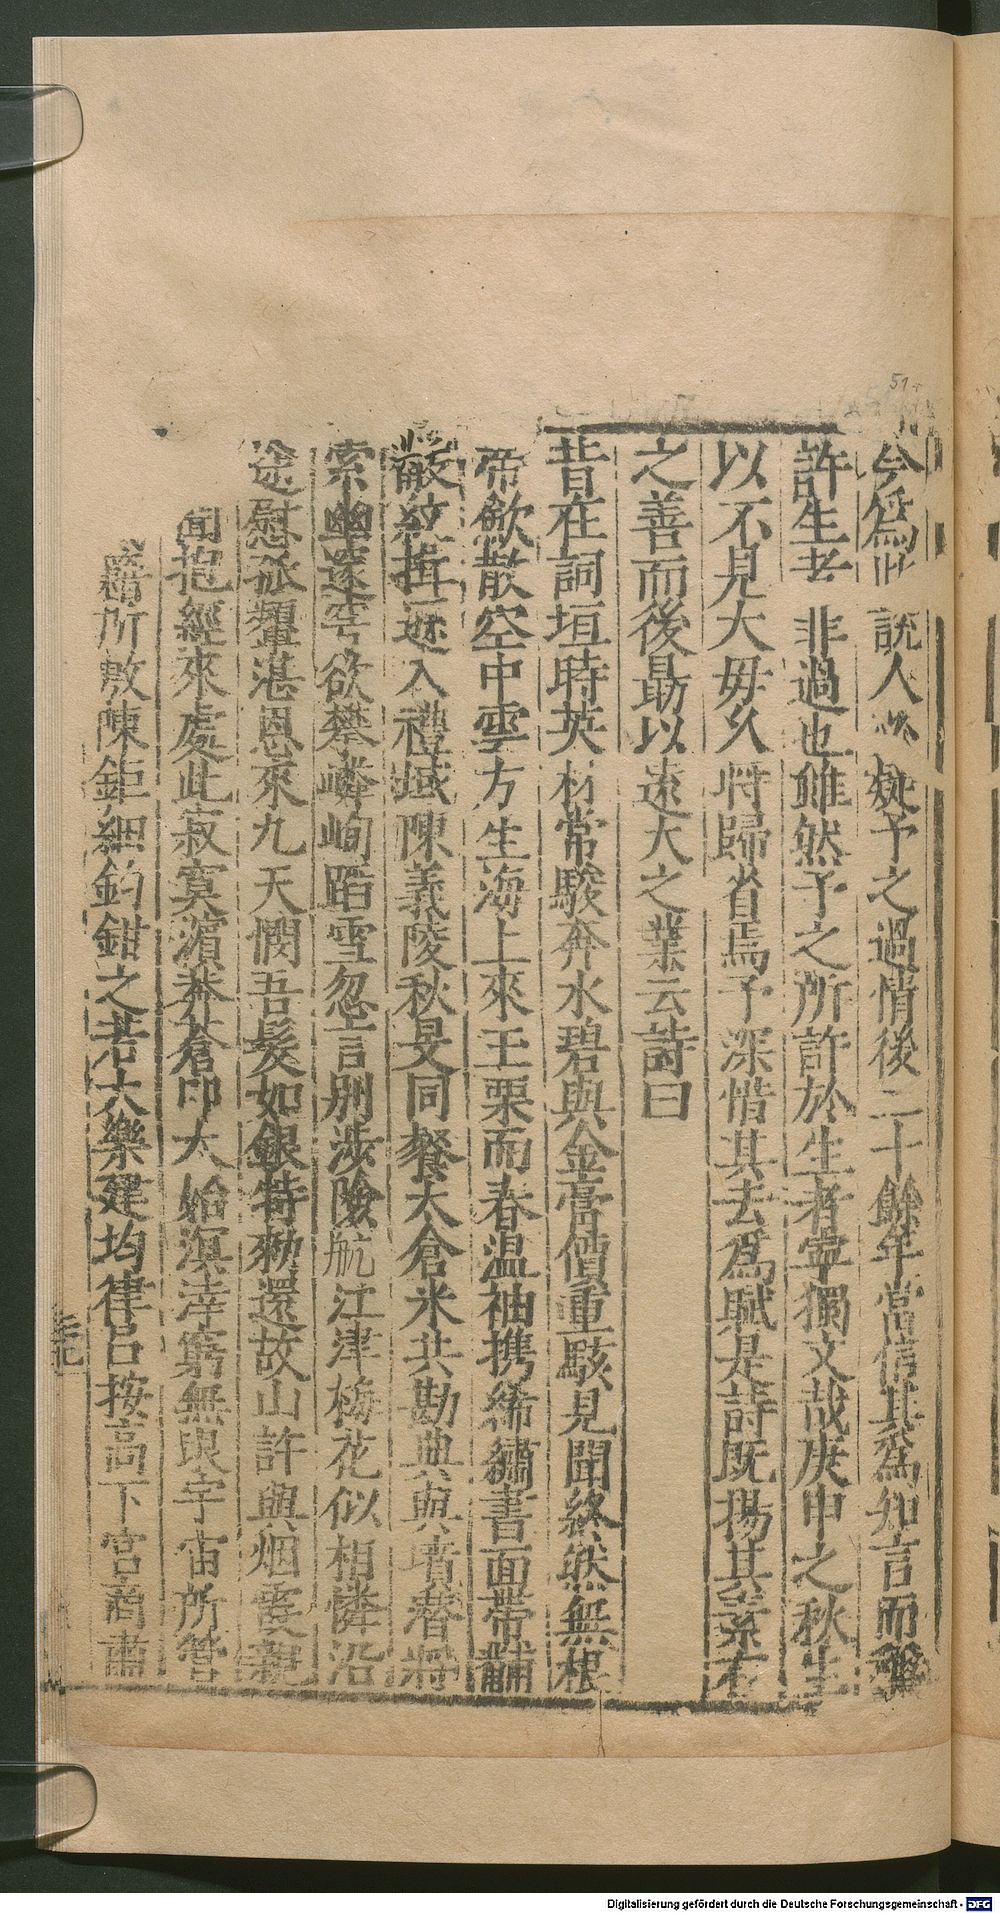 今爲此說人必疑予之過情後二十餘年當信其爲知言而稱
許生者非過也雖然予之所許於生者寧獨文哉庚申之秋生
以不見大母久將歸省焉予深惜其去爲賦是詩既揚其素有
之善而後勗以遠大之業云詩曰
昔在詞垣時英材常駿奔水碧與金膏價重駭見聞終然無根
帝歘散空中雲方生海上來玉栗而春温袖携絺繡書面帶黼
黻紋揖遜入禮域陳義陵秋旻同餐太倉米共勘典與墳春將
索幽邃穹欲攀嶙峋蹈雪忽言別涉險航江津梅花似相憐沿
途慰孤顰湛恩來九天憫吾髮如銀特勑還故山許與烟霞親
聞抱經來處此寂寞濵莽蒼印太始溟涬窮無垠宇宙所管
籥所敷陳鉅細鈞鉗之若大樂建均律吕按高下宮商肅
51
Digitalisierung gefördert durch die Deutsche Forschungsgemeinschaft - DFG